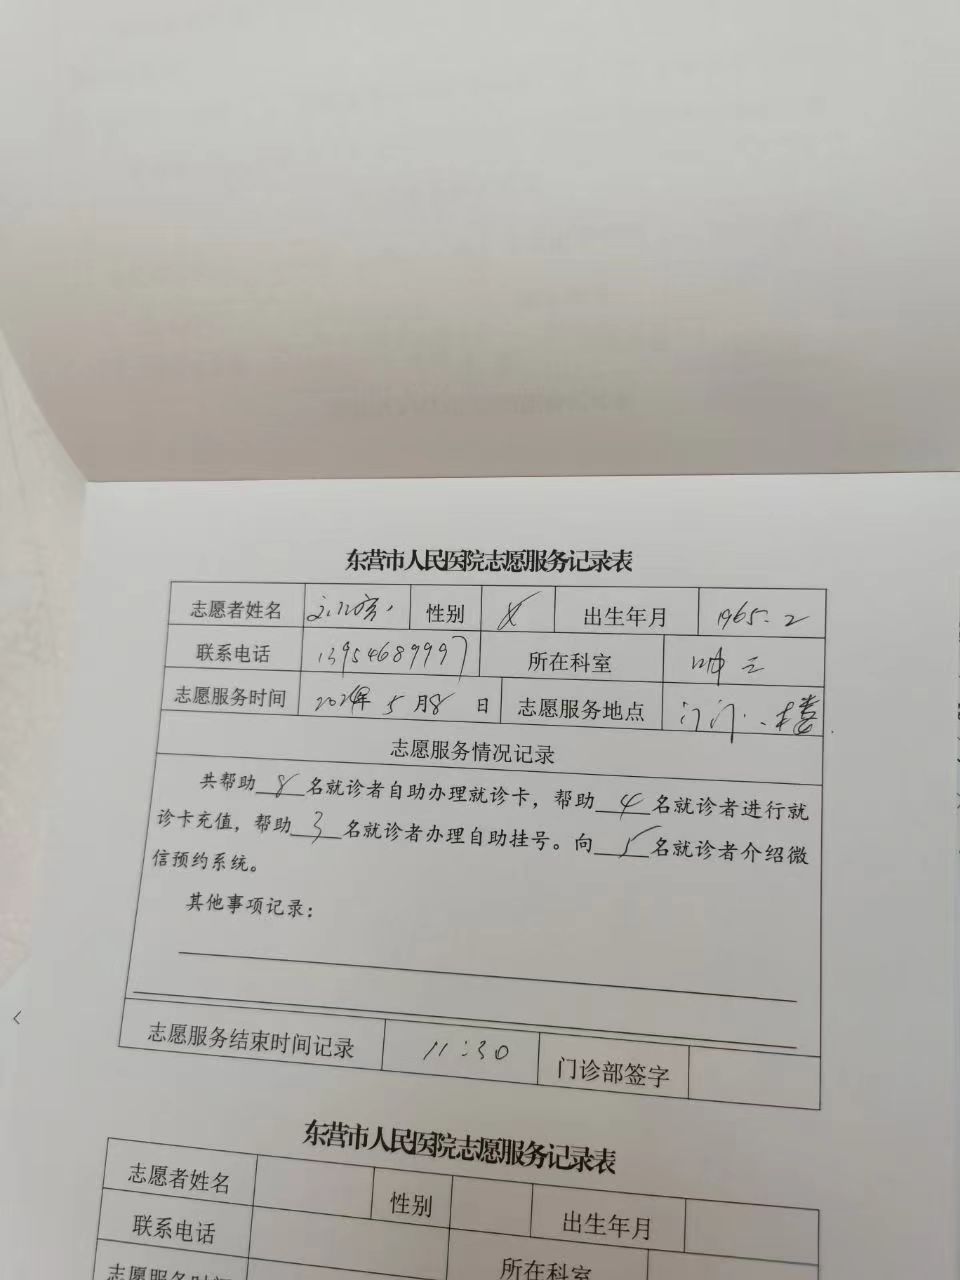 东营市人民医院志愿服务记录表
志愿者姓名 性别 女 出生年月 1965.2
联系电话 13954689997 所在科室
志愿服务时间 年 5 月 8 日 志愿服务地点 楼
志愿服务情况记录
共帮助 8 名就诊者自助办理就诊卡，帮助 4 名就诊者进行就
诊卡充值，帮助 3 名就诊者办理自助挂号。向 5 名就诊者介绍微
信预约系统。
其他事项记录：
志愿服务结束时间记录 11:30 门诊部签字
东营市人民医院志愿服务记录表
志愿者姓名 性别 出生年月
联系电话 所在科室
志愿服务时间